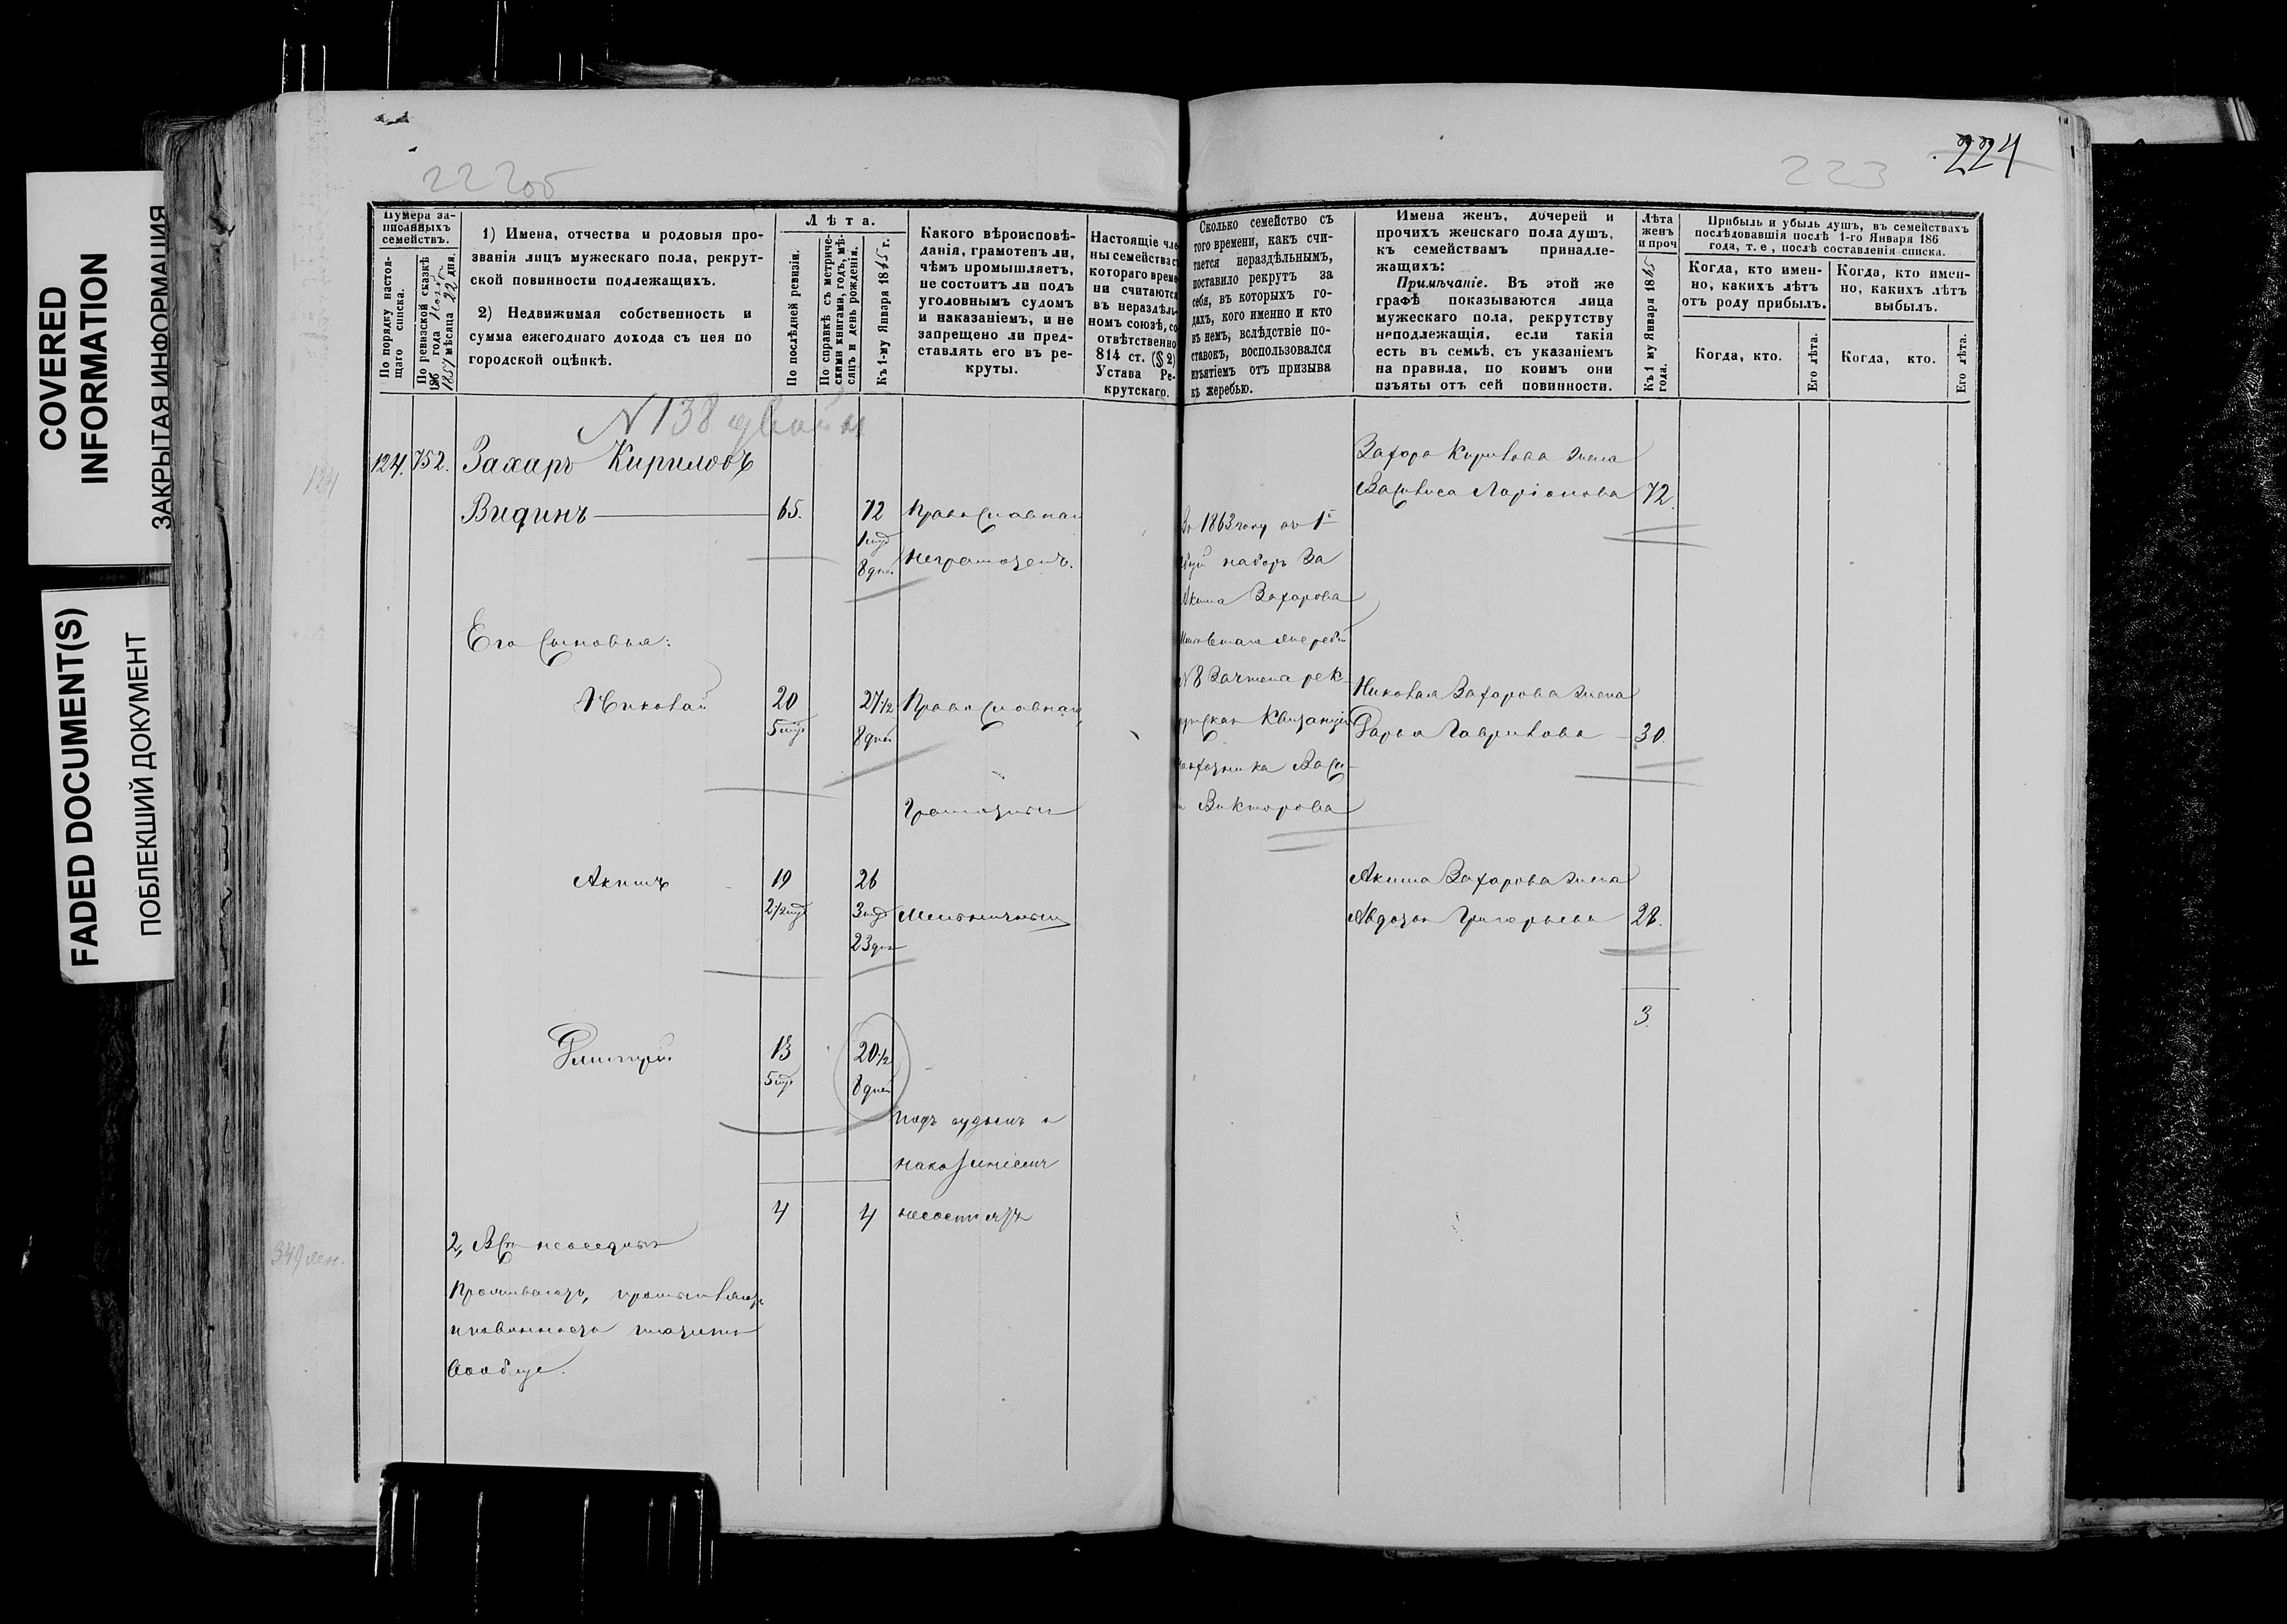 COVERED
INFORMATION
ЗАКРЫТАЯ ИНФОРМАЦИЯ
FADED DOCUMENT(S)
ПОБЛЕКШИЙ ДОКУМЕНТ
222об
Нумера за-
писанныхъ
семействъ.
По порядку настоя-
щаго списка.
По ревизской сказкѣ
186 года
1857 мѣсяца 22 дня.
1) Имена, отчества и родовыя про-
званія лицъ мужескаго пола, рекрут-
ской повинности подлежащихъ.
2) Недвижимая собственность и
сумма ежегоднаго дохода съ нея по
городской оцѣнкѣ.
Лѣта.
По послѣдней ревизіи.
По справкѣ съ метриче-
скими книгами, годъ, мѣ-
сяцъ и день рожденія.
Къ 1-му Января 1865 г.
Какого вѣроисповѣ-
данія, грамотенъ ли,
чѣмъ промышляетъ,
не состоитъ ли подъ
уголовнымъ судомъ
и наказаніемъ, и не
запрещено ли пред-
ставлять его въ ре-
круты.
Настоящіе чле
ны семейства с
котораго време
ни считаются
въ нераздѣль-
номъ союзѣ, со
отвѣтственно
814 ст. (§ 2)
Устава Ре-
крутскаго.
N 138 двойн
124. 752. Захаръ Кириловъ
Видинъ 65. 72 Православнаго
1 мѣс
8 дней неграмотенъ.
Его сыновья:
Николай 20 27 1/2 Православнаго
5 мѣс 8 дней
Грамотны
Акимъ 19 26
2 1/2 мѣс 3 мѣс
23 дня
Дмитрій 13 20 1/2
5 мѣс 8 дней
подъ судомъ и
наказаніемъ
4 4 несостоятъ
2, Всѣ
и повинности платятъ
вообще.
124
349
223
224
Сколько семейство съ
того времени, какъ счи-
тается нераздѣльнымъ,
поставило рекрутъ за
себя, въ которыхъ го-
дахъ, кого именно и кто
въ немъ, вслѣдствіе по-
ставокъ, воспользовался
изъятіемъ отъ призыва
къ жеребью.
Имена женъ, дочерей и
прочихъ женскаго пола душъ,
къ семействамъ принадле-
жащихъ:
Примѣчаніе. Въ этой же
графѣ показываются лица
мужескаго пола, рекрутству
неподлежащія, если такія
есть въ семьѣ, съ указаніемъ
на правила, по коимъ они
изъяты отъ сей повинности.
Лѣта
женъ
и проч
Къ 1 му Января 1865
года.
Прибыль и убыль душъ, въ семействахъ
послѣдовавшія послѣ 1-го Января 186
года, т. е., послѣ составленія списка.
Когда, кто имен-
но, какихъ лѣтъ
отъ роду прибылъ.
Когда, кто имен-
но, какихъ лѣтъ
выбылъ.
Когда, кто.
Его лѣта.
Когда, кто.
Его лѣта.
Захара Кирилова жена
Василиса Ларіонова 72.
Въ 1863 году въ 1й
наборъ за
Акима Захарова
N 8 зачтена рек-
рутская квитанція
Васи
Викторова
Николая Захарова жена
Дарья Гаврилова 30.
Акима Захарова жена
Авдотья Григорьева 28.
3.